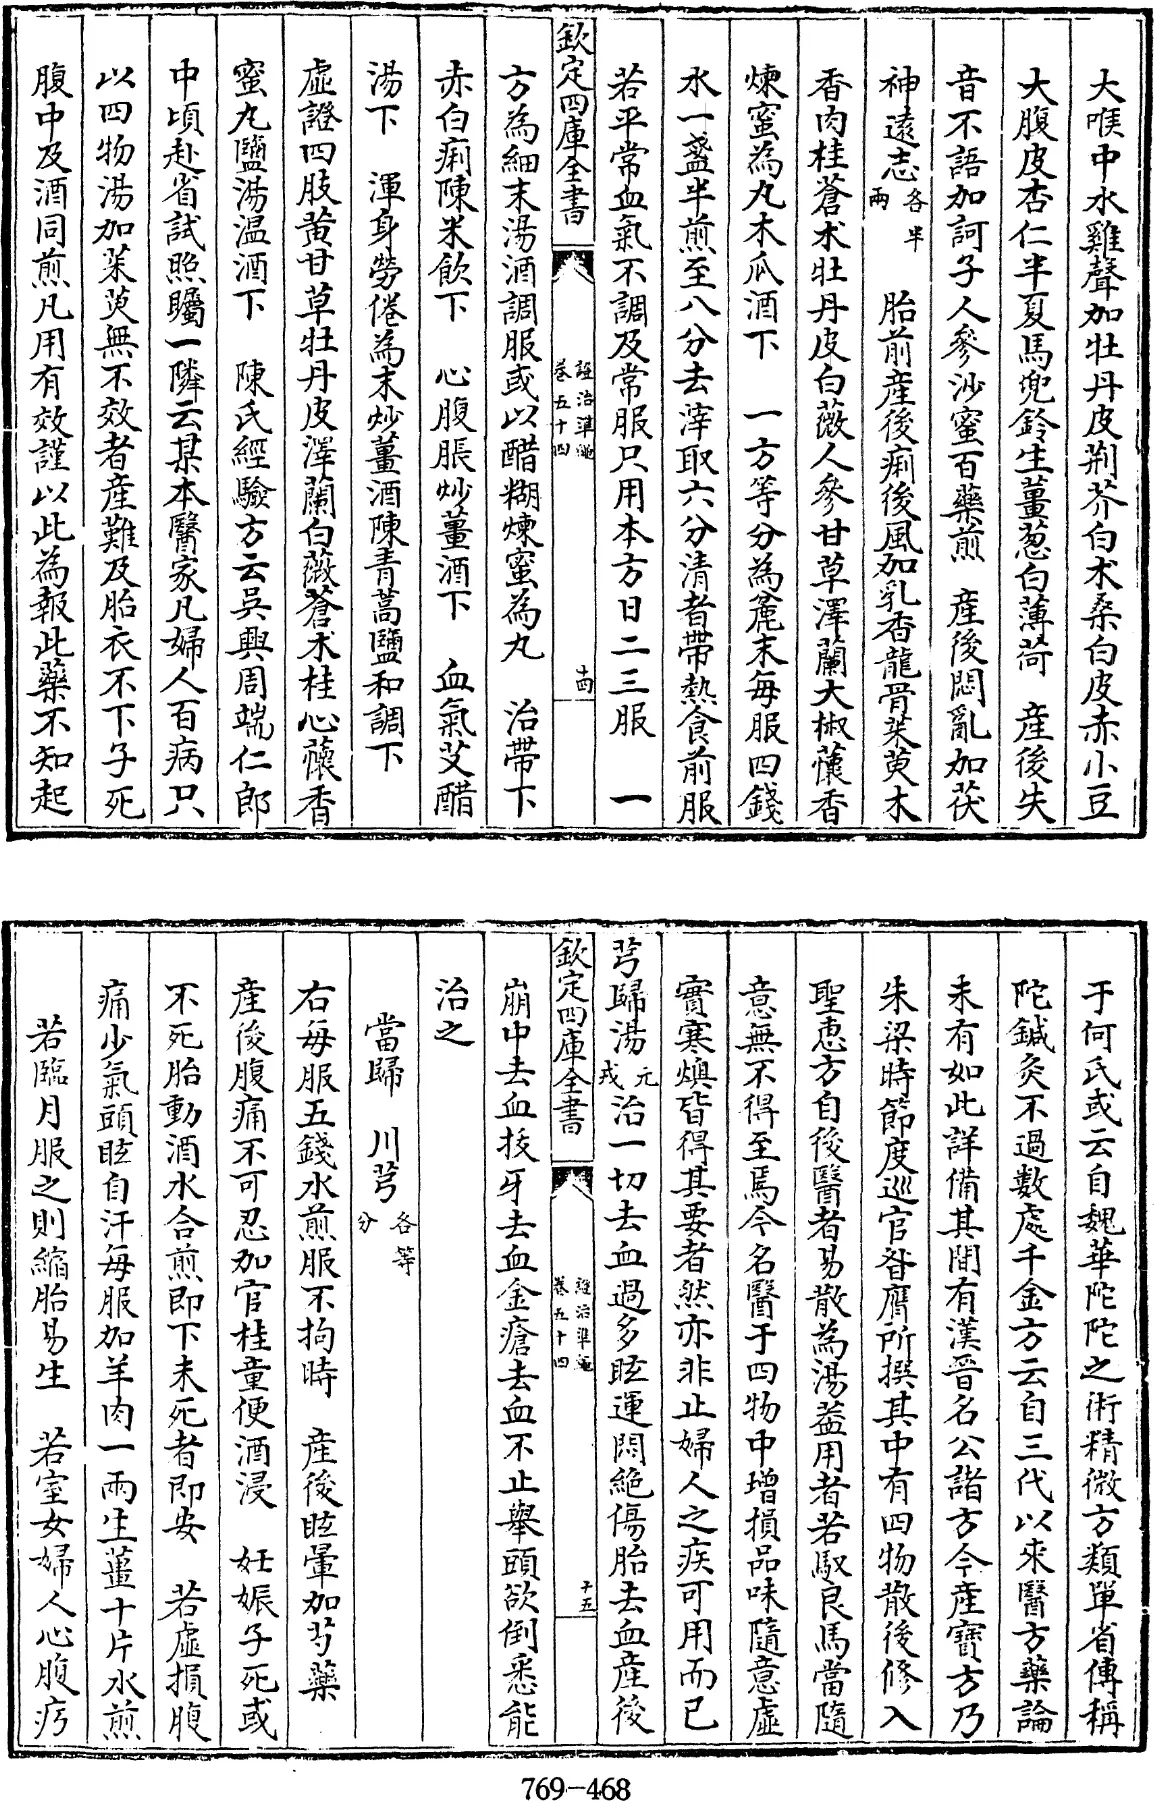 大喉中水雞聲加牡丹皮荆芥白术桑白皮赤小豆
大腹皮杏仁半夏馬兜鈴生薑葱白薄荷　産後失
音不語加訶子人參沙蜜百藥煎　産後悶亂加茯
神遠志各半兩　胎前産後痢後風加乳香龍骨茱萸木
香肉桂蒼术牡丹皮白薇人參甘草澤蘭大椒蘹香
煉蜜為丸木瓜酒下　一方等分為麄末每服四錢
水一盞半煎至八分去滓取六分清者帶熱食前服
若平常血氣不調及常服只用本方日二三服　一
欽定四庫全書
證治準繩
卷五十四
十四
方為細末湯酒調服或以醋糊煉蜜為丸　治帶下
赤白痢陳米飲下　心腹脹炒薑酒下　血氣艾醋
湯下　渾身勞倦為末炒薑酒陳青蒿鹽和調下
虛證四肢黄甘草牡丹皮澤蘭白薇蒼术桂心蘹香
蜜丸鹽湯温酒下　陳氏經驗方云吳興周端仁郎
中頃赴省試照矚一隣云某本醫家凡婦人百病只
以四物湯加茱萸無不效者産難及胎衣不下子死
腹中及酒同煎凡用有效謹以此為報此藥不知起
于何氏或云自魏華陀陀之術精微方類單省傳稱
陀鍼灸不過數處千金方云自三代以來醫方藥論
未有如此詳備其間有漢晉名公諸方今産寳方乃
朱梁時節度巡官昝膺所撰其中有四物散後修入
聖恵方自後醫者易散為湯葢用者若馭良馬當隨
意無不得至焉今名醫于四物中增損品味隨意虛
實寒燠皆得其要者然亦非止婦人之疾可用而已
芎歸湯元戎治一切去血過多眩運悶絶傷胎去血産後
欽定四庫全書
證治準繩
卷五十四
十五
崩中去血拔牙去血金瘡去血不止舉頭欲倒悉能
治之
當歸　川芎各等分
右每服五錢水煎服不拘時　産後眩暈加芍藥
産後腹痛不可忍加官桂童便酒浸　妊娠子死或
不死胎動酒水合煎即下未死者即安　若虛損腹
痛少氣頭眩自汗每服加羊肉一兩生薑十片水煎
若臨月服之則縮胎易生　若室女婦人心腹㽲
769-468